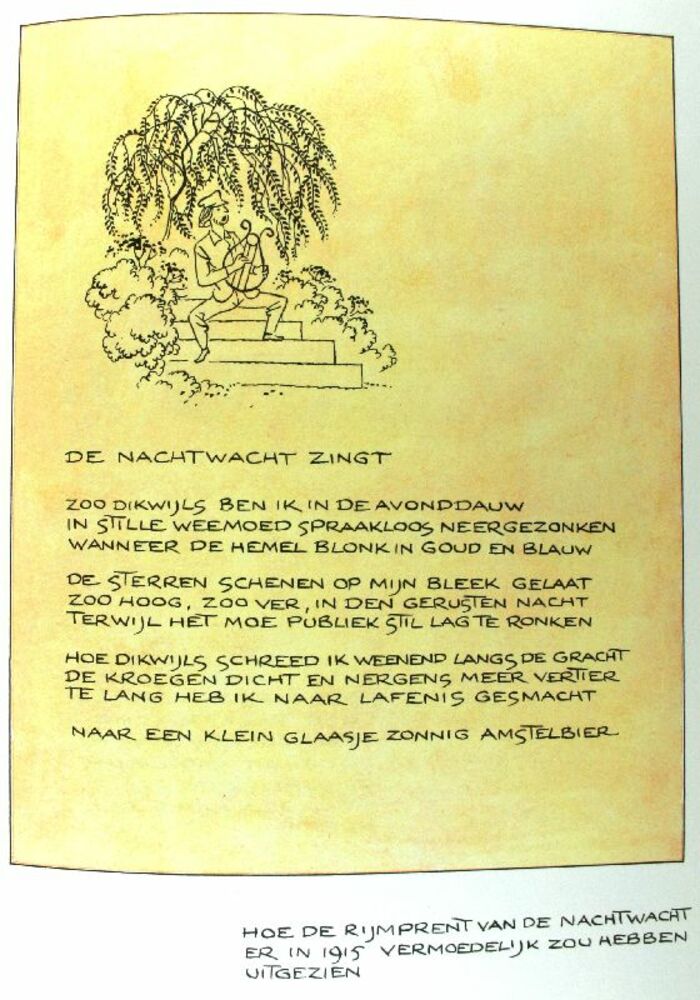 DE NACHTWACHT ZINGT
ZOO DIKWIJLS BEN IK IN DE AVONDDAUW
IN STILLE WEEMOED SPRAAKLOOS NEERGEZONKEN
WANNEER DE HEMEL BLONK IN GOUD EN BLAUW
DE STERREN SCHENEN OP MIJN BLEEK GELAAT
ZOO HOOG, ZOO VER, IN DEN GERUSTEN NACHT
TERWIJL HET MOE PUBLIEK STIL LAG TE RONKEN
HOE DIKWIJLS SCHREED IK WEENEND LANGS DE GRACHT
DE KROEGEN DICHT EN NERGENS MEER VERTIER
TE LANG HEB IK NAAR LAFENIS GESMACHT
NAAR EEN KLEIN GLAASJE ZONNIG AMSTELBIER
HOE DE RIJMPRENT VAN DE NACHTWACHT
ER IN 1915 VERMOEDELIJK ZOU HEBBEN
UITGEZIEN